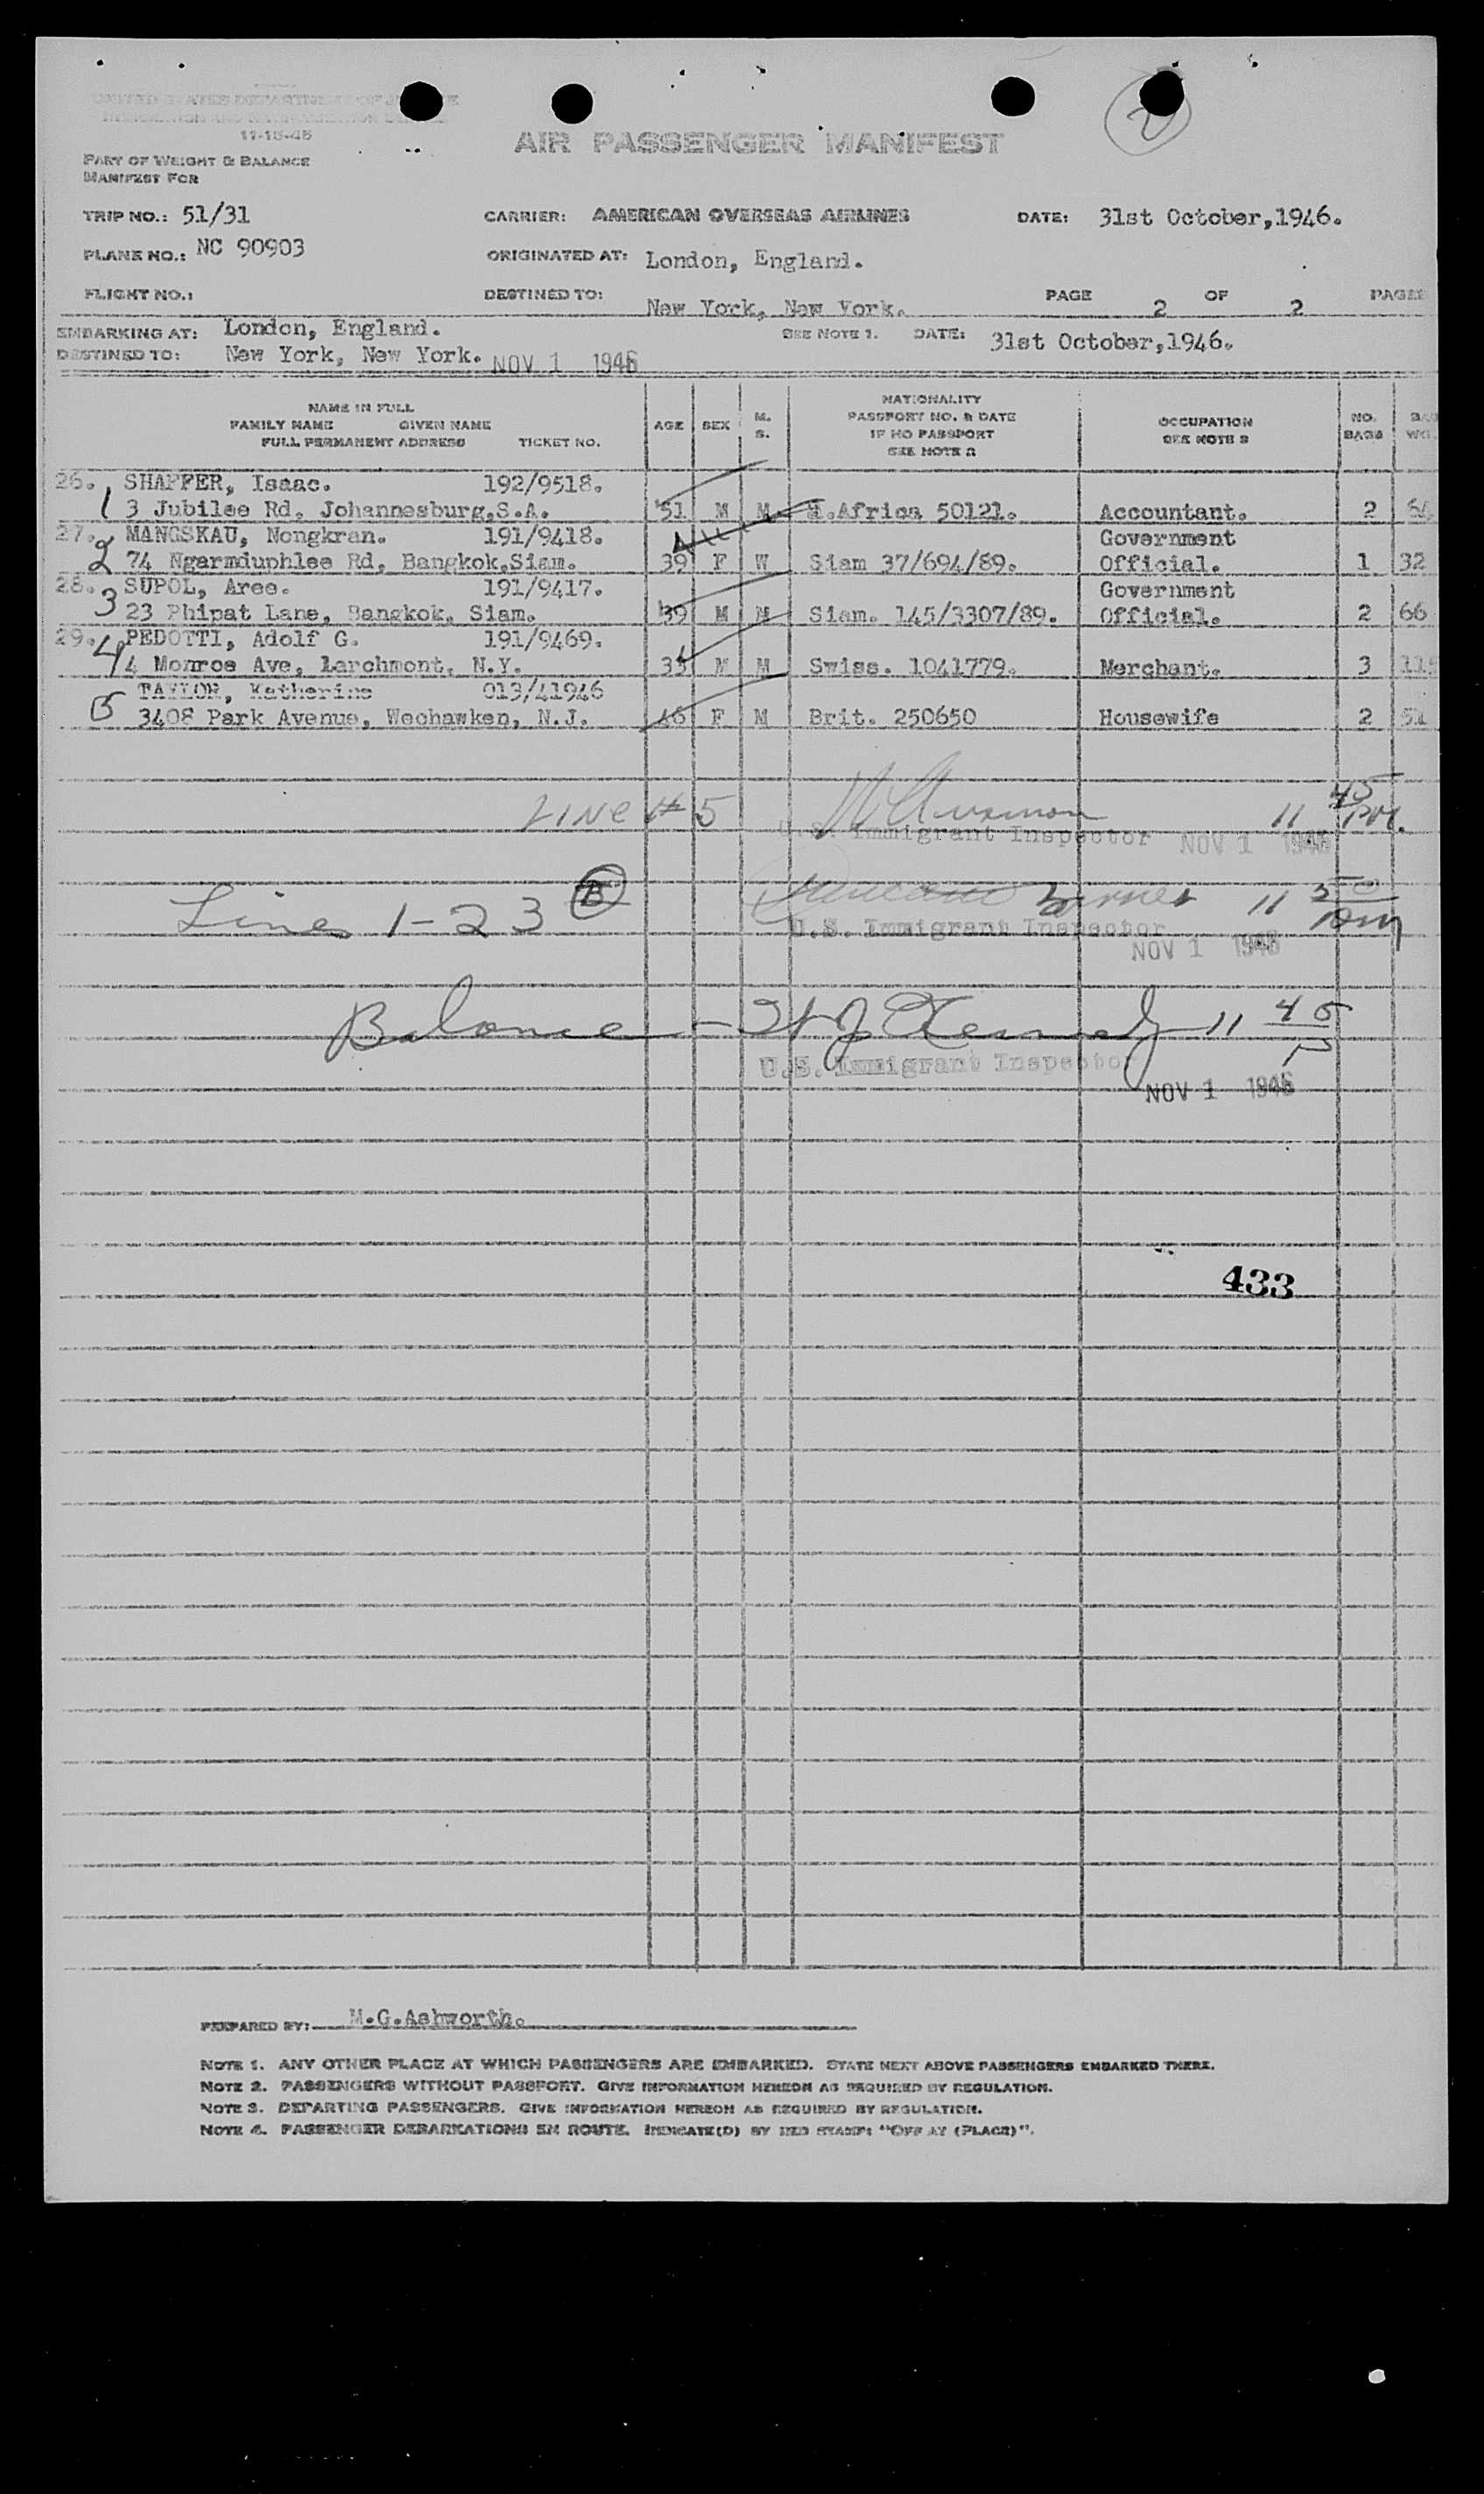 UNITED STATES DEPARTMENT OF JUSTICE
IMMIGRATION AND NATURALIZATION SERVICE
11-15-45
AIR PASSENGER MANIFEST
2
PART OF WEIGHT & BALANCE
MANIFEST FOR
TRIP NO.: 51/31 CARRIER: AMERICAN OVERSEAS AIRLINES DATE: 31st October,1946.
PLANE NO.: NC 90903 ORIGINATED AT: London, England.
FLIGHT NO.: DESTINED TO: New York, New York. PAGE 2 OF 2 PAGES
EMBARKING AT: London, England. SEE NOTE 1. DATE: 31st October,1946.
DESTINED TO: New York, New York. NOV 1 1946
NAME IN FULL
FAMILY NAME GIVEN NAME
FULL PERMANENT ADDRESS TICKET NO.
AGE SEX M. S.
NATIONALITY
PASSPORT NO. & DATE
IF NO PASSPORT
SEE NOTE 2
OCCUPATION
SEE NOTE 3
NO. BAGS
26. SHAFFER, Isaac. 192/9518.
1 3 Jubilee Rd, Johannesburg,S.A. 51 M M S.Africa 50121. Accountant. 2 64
27. MANGSKAU, Nongkran. 191/9418. Government
2 74 Ngarmduphlee Rd, Bangkok,Siam. 39 F W Siam 37/694/89. Official. 1 32
28. SUPOL, Aree. 191/9417. Government
3 23 Phipat Lane, Bangkok, Siam. 39 M M Siam. 145/3307/89. Official. 2 66
29. PEDOTTI, Adolf G. 191/9469.
4 4 Monroe Ave, Larchmont, N.Y. 33 M M Swiss. 1041779. Merchant. 3 115
TAYLOR, Katherine 013/41946
5 3408 Park Avenue, Weohawken, N.J. 46 F M Brit. 250650 Housewife 2 51
LINE # 5 11 45 PM.
U.S. Immigrant Inspector NOV 1 1946
Lines 1-23 B 11 50 PM
U.S. Immigrant Inspector
NOV 1 1946
Balance - H J Kennedy 11 45 P
U.S. Immigrant Inspector
NOV 1 1946
433
PREPARED BY: M.G.Ashworth.
NOTE 1. ANY OTHER PLACE AT WHICH PASSENGERS ARE EMBARKED. STATE NEXT ABOVE PASSENGERS EMBARKED THERE.
NOTE 2. PASSENGERS WITHOUT PASSPORT. GIVE INFORMATION HEREON AS REQUIRED BY REGULATION.
NOTE 3. DEPARTING PASSENGERS. GIVE INFORMATION HEREON AS REQUIRED BY REGULATION.
NOTE 4. PASSENGER DEBARKATIONS EN ROUTE. INDICATE(D) BY RED STAMP: "OFF AT (PLACE)".